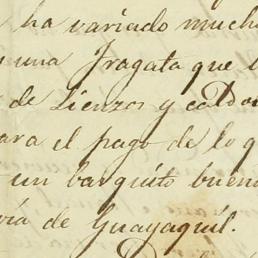 ha variado much
una Fragata que
de Lienzos y caldo
ara el pago de lo q
un barquito buen
ria de Guayaquil.